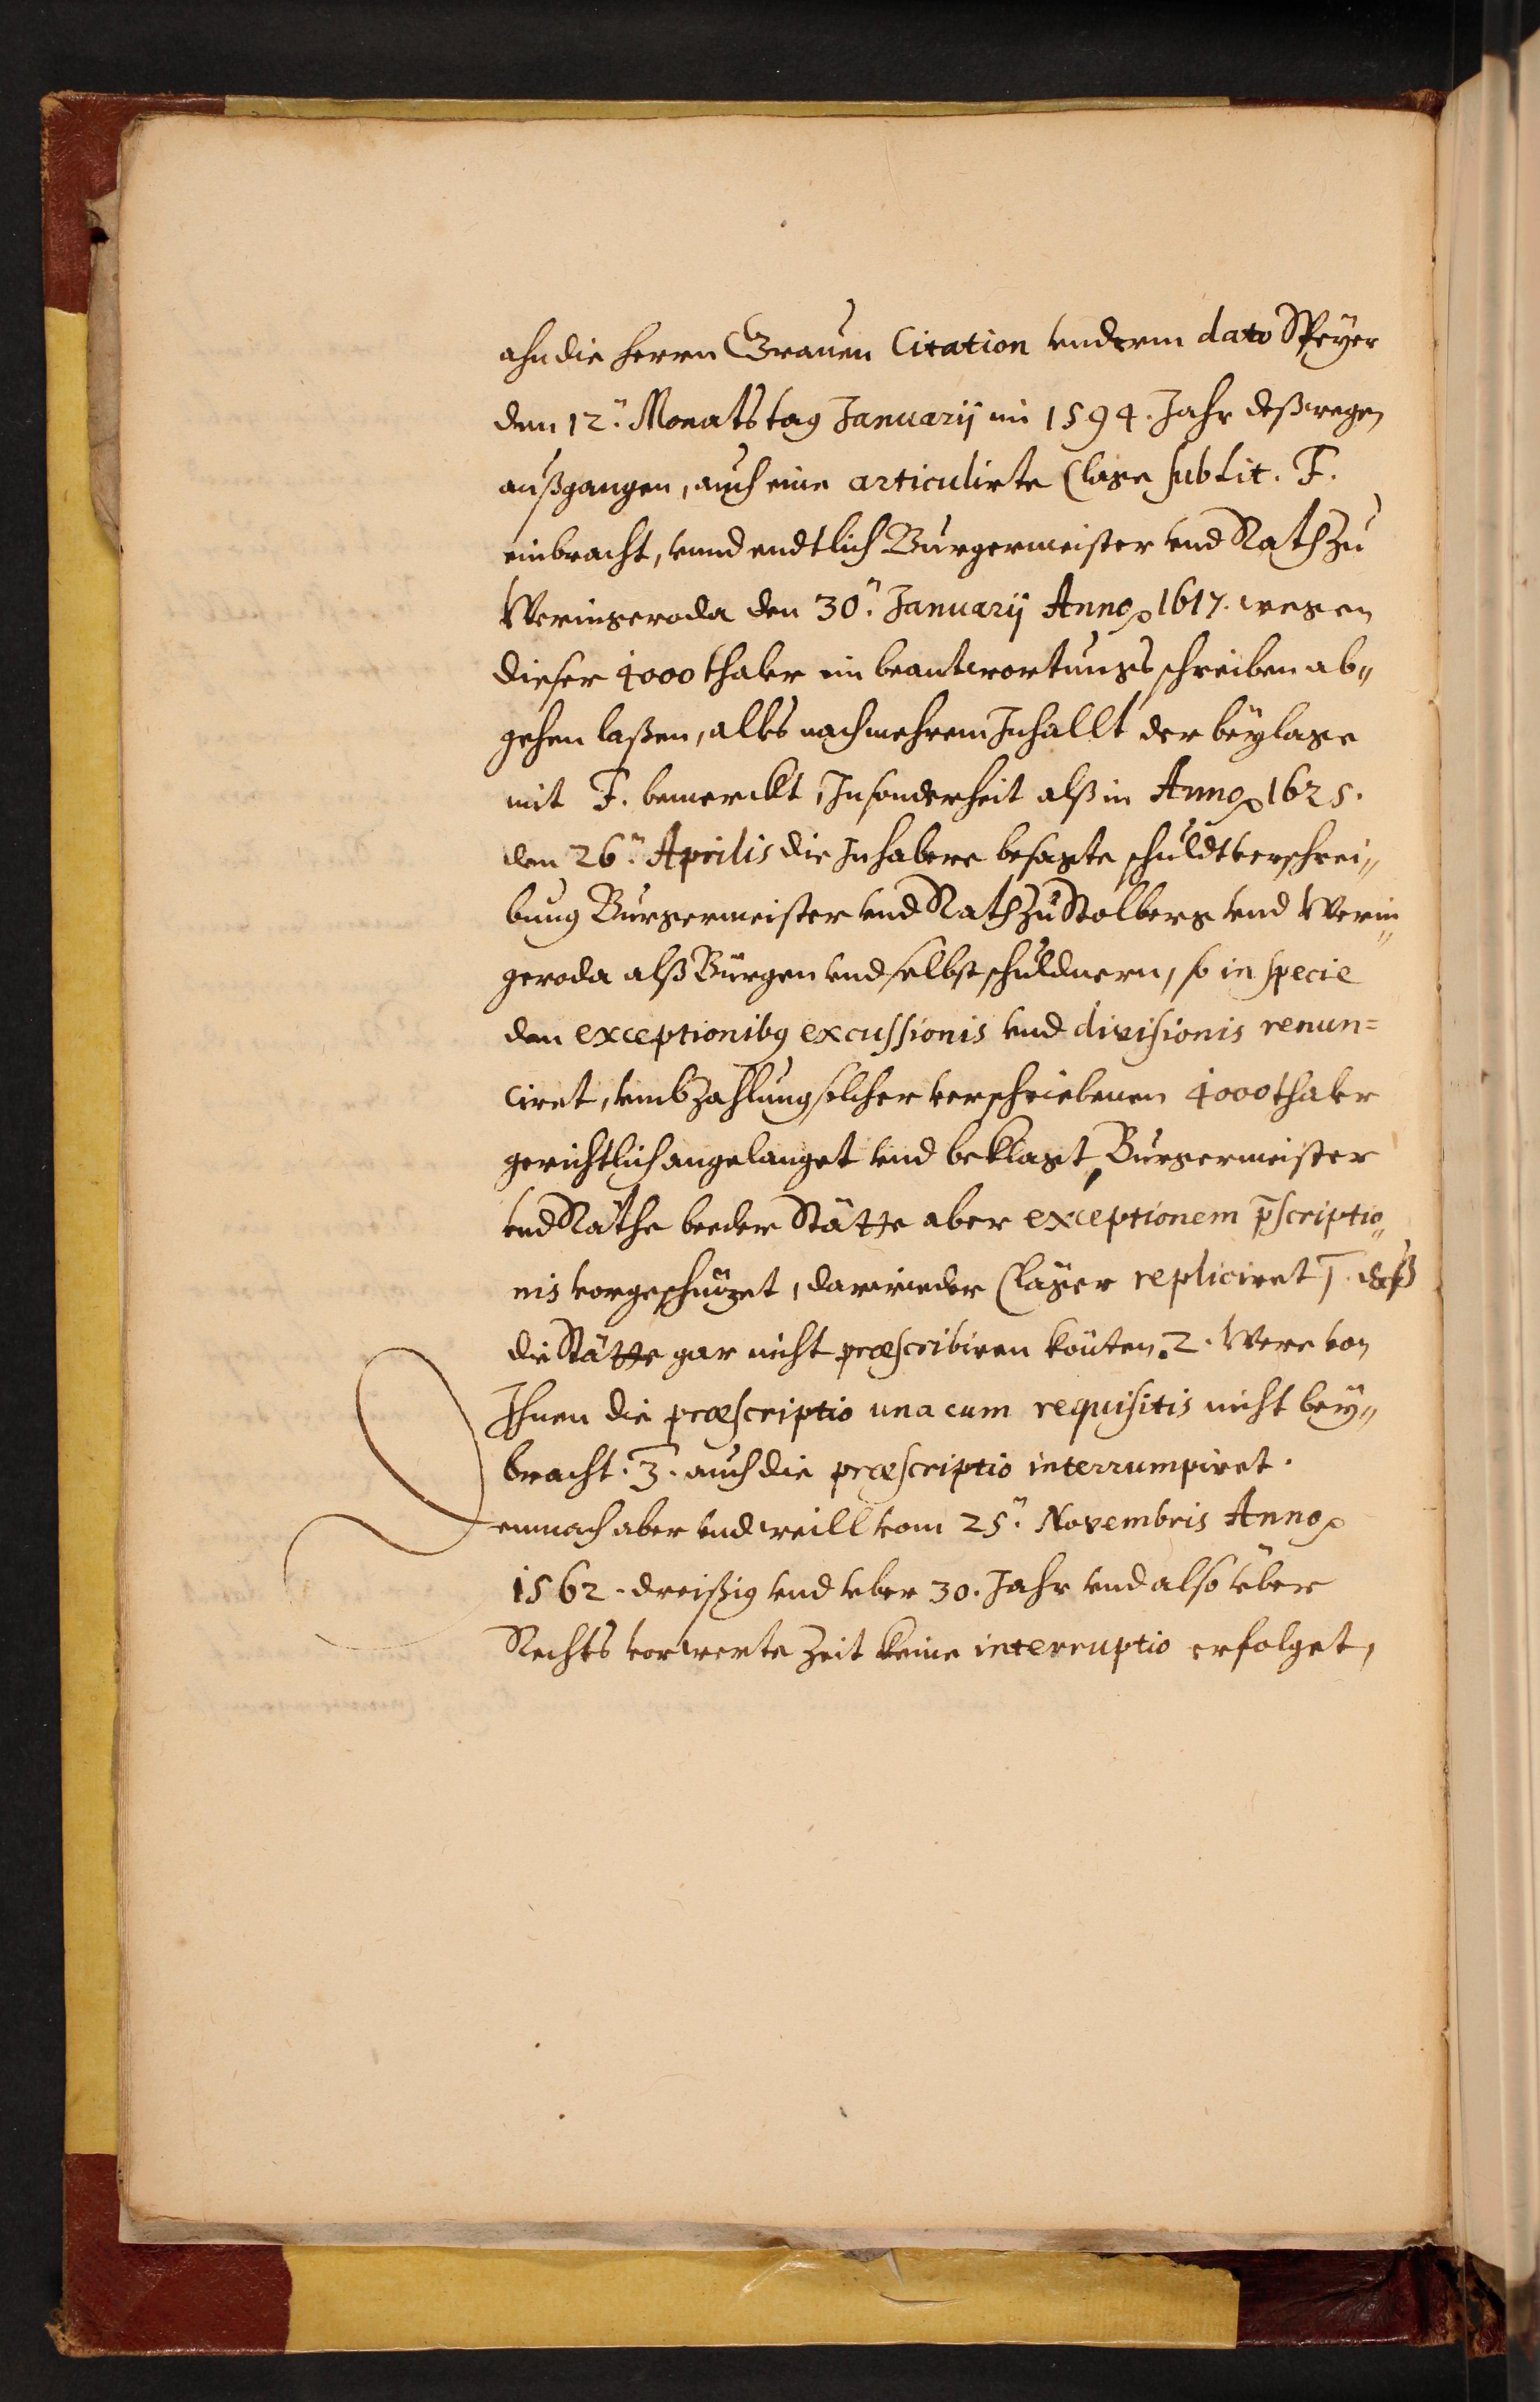 ahn die herrn Grauen Citation vnderm dato Speÿer
den 12.ⁿ Monats tag Januarij im 1594. Jahr deßwegen
außgangen, auch eine articulirte Clage sub Lit. F.
einbracht, vnnd endtlich Burgermeister vnd Rath zu
Werningeroda den 30.ⁿ Januarij Anno 1617. wegen
dieser 4000 thaler ein beantwortungs schreiben ab„
gehen laßen, alles nach mehrem Inhallt der beÿlage
mit F. bemerckt, Insonderheit alß in Anno 1625.
den 26.ⁿ Aprilis die Inhabere besagte schuldtverschrei„
bung Burgermeister vnd Rath zu Stolberg vnd Wernin„
geroda alß Bürgen vnd selbst schuldnern, so in specie
den exceptionibꝰ excussionis vnd divisionis renun=
ciret, vmb Zahlung solcher verschriebenen 4000 thaler
gerichtlich angelanget vnd beklagt, Burgermeister
vnd Räthe beeder Stätte aber exceptionem p̄scriptio„
nis vorgeschüzet, darwieder Cläger repliciret 1. daß
die Stätte gar nicht præscribiren könten. 2. Were von
Ihnen die præscriptio una cum requisitis nicht beÿ„
bracht. 3. auch die præscriptio interrumpiret.
Demnach aber vnd weill vom 25.ⁿ Novembris Anno
1562. dreißig vnd vber 30. Jahr vnd also vber
Rechts vorwerte Zeit keine interruptio erfolget,